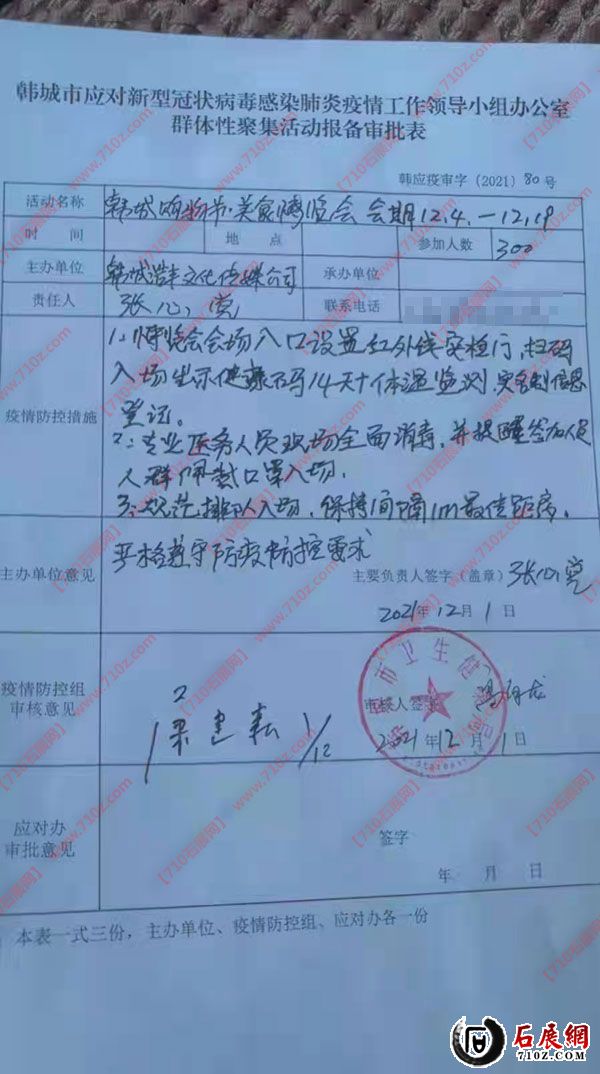 韩城市应对新型冠状病毒感染肺炎疫情工作领导小组办公室
群体性聚集活动报备审批表
韩应疫审字〔2021〕80号
活动名称 韩城购物节·美食博览会 会期12.4.—12.19
时 间 地 点 参加人数 300
主办单位 韩城浩丰文化传媒公司 承办单位
责任人 张心 联系电话
疫情防控措施
1、博览会会场入口设置红外线安检门，扫码
入场出示健康码14天+体温监测，实名制信息
登记。
2、专业医务人员现场全面消毒，并提醒参加人员
人群佩戴口罩入场。
3、规范排队入场，保持间隔1m最佳距离。
主办单位意见
严格遵守防疫防控要求
主要负责人签字（盖章）张心
2021年12月1日
疫情防控组
审核意见
建 1/12
市卫生健
审核人签字
2021年12月1日
应对办
审批意见
签字
年 月 日
本表一式三份，主办单位、疫情防控组、应对办各一份
【710石展网】www.710z.com
石展網
710z.COM